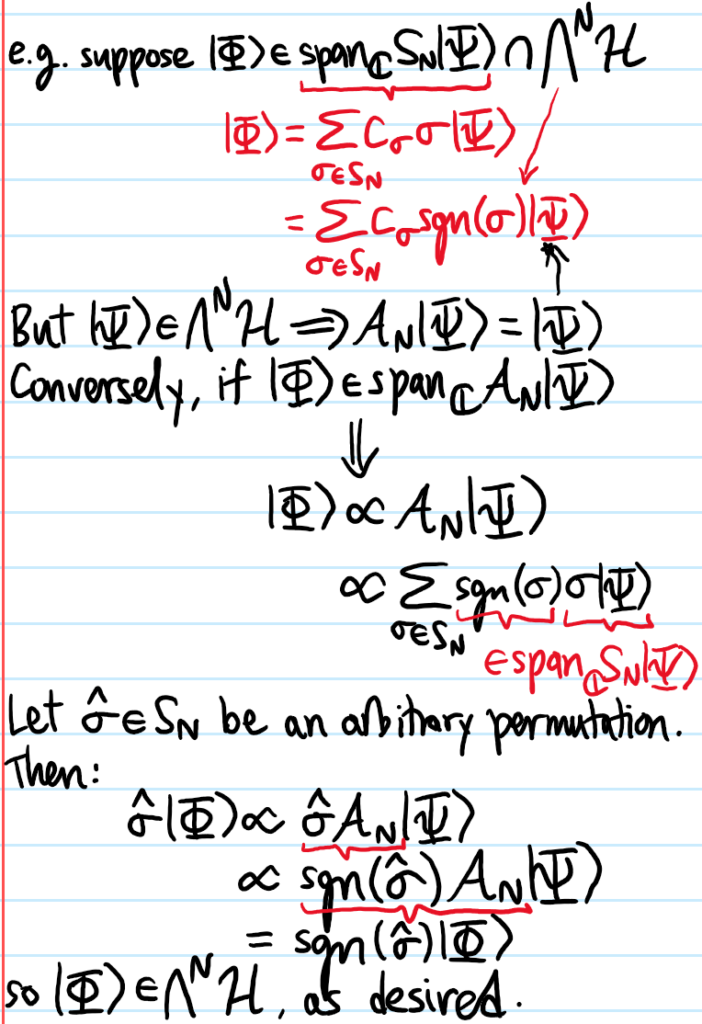 e.g. suppose |Φ⟩ ∈ span_ℂ S_N|Ψ⟩ ∩ ⋀^N ℋ
|Φ⟩ = Σ_{σ∈S_N} C_σ σ|Ψ⟩
= Σ_{σ∈S_N} C_σ sgn(σ)|Ψ⟩
But |Ψ⟩ ∈ ⋀^N ℋ ⟹ 𝒜_N|Ψ⟩ = |Ψ⟩
Conversely, if |Φ⟩ ∈ span_ℂ 𝒜_N|Ψ⟩
⇓
|Φ⟩ ∝ 𝒜_N|Ψ⟩
∝ Σ_{σ∈S_N} sgn(σ) σ|Ψ⟩
∈ span_ℂ S_N|Ψ⟩
Let σ̂ ∈ S_N be an arbitrary permutation.
Then:
σ̂|Φ⟩ ∝ σ̂ 𝒜_N|Ψ⟩
∝ sgn(σ̂) 𝒜_N|Ψ⟩
= sgn(σ̂)|Φ⟩
so |Φ⟩ ∈ ⋀^N ℋ, as desired.